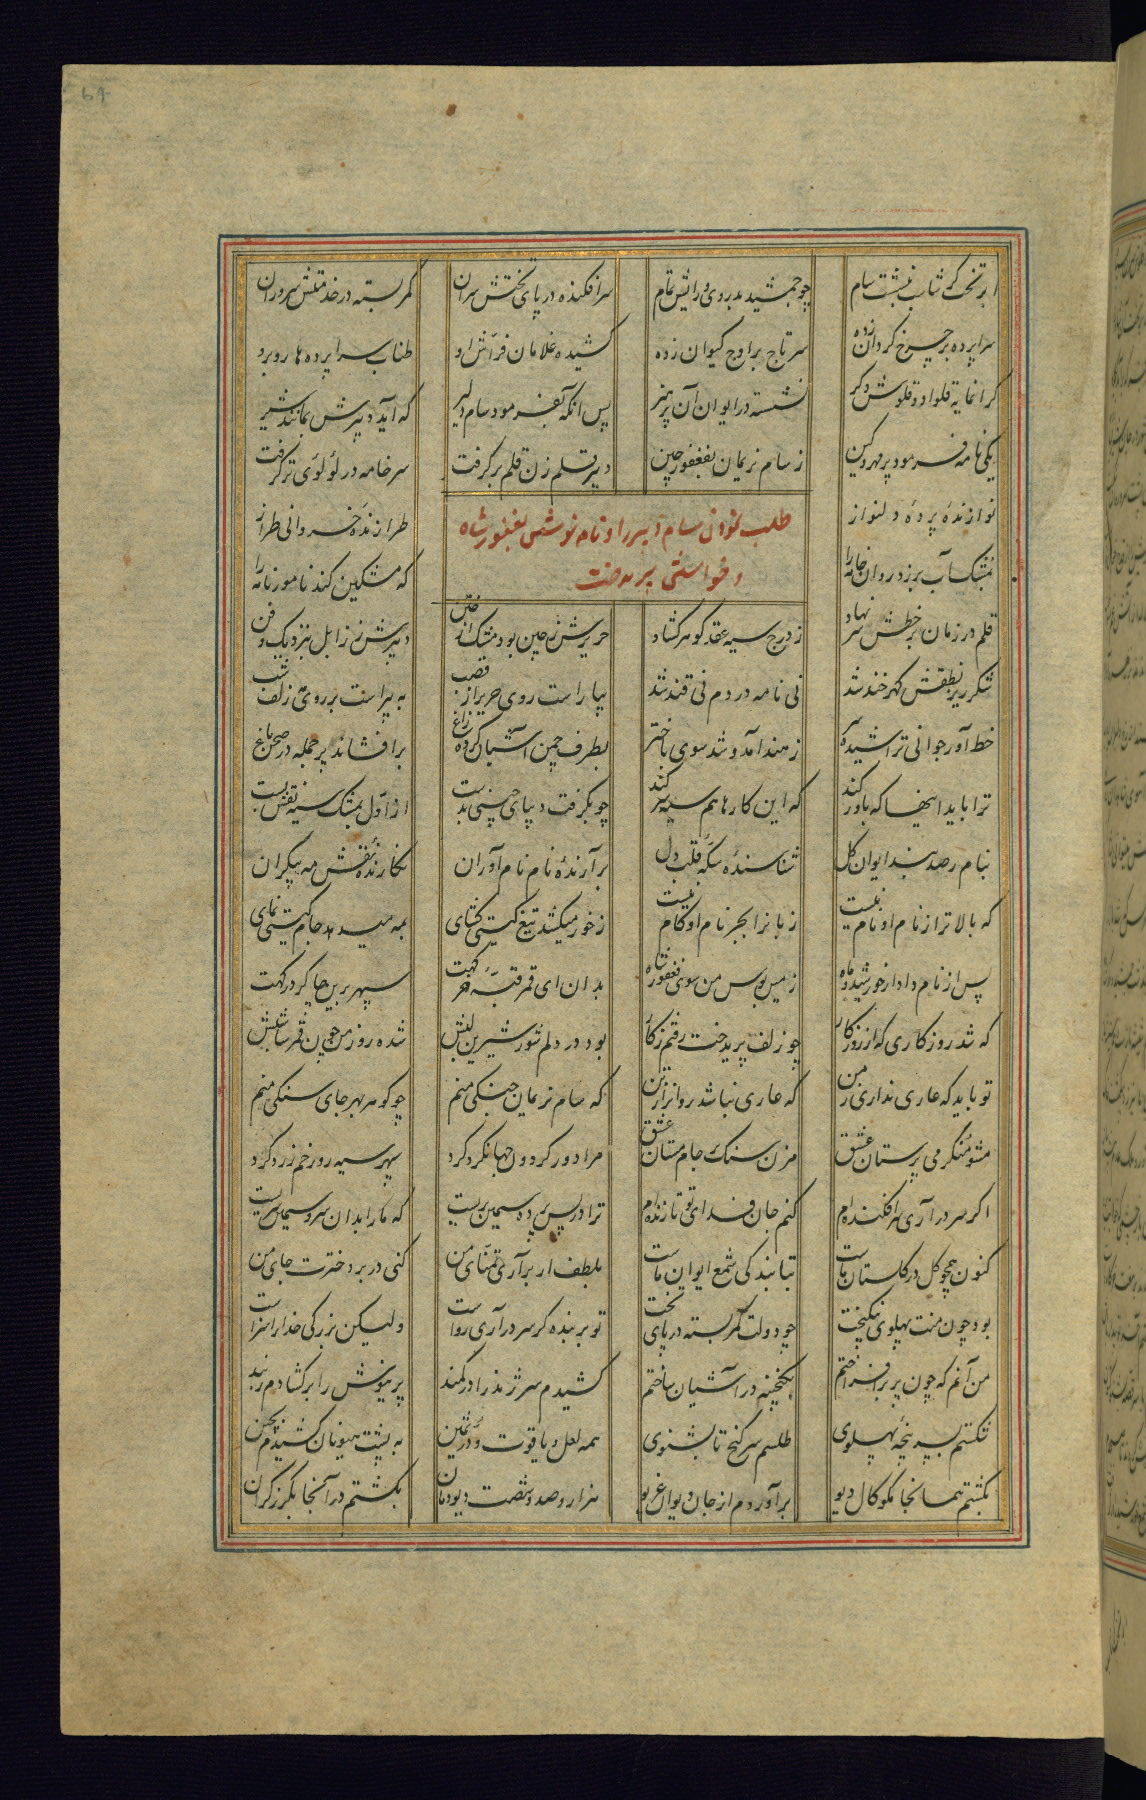 ابر تخت گرشاسب بنشست سام
چو جمشید مه روی و رایش تمام
سرافکنده در پای تختش سران
کمر بسته در خدمتش سروران
سراپرده بر چرخ گردان زده
سر تاج بر اوج کیوان زده
کشیده غلامان فراش او
طناب سراپرده ها روبرو
گرانمایه قلواد و قلوش دگر
نشسته در ایوان آن پرهنر
پس آنگه بفرمود سام دلیر
که آید دبیرش بمانند شیر
یکی نامه فرمود پر مهر و کین
ز سام نریمان بفغفور چین
دبیر قلم زن قلم برگرفت
سر خامه در لؤلؤی تر گرفت
طلب نمودن سام دبیر را و نامه نوشتن بفغفور شاه
و خواستن پریدخت
نوازندهٔ پردهٔ دلنواز
طرازندهٔ خسروانی طراز
بمشک آب بر زد روان خامه را
که مشکین کند نامور نامه را
قلم در زمان بر خطش سر نهاد
ز درج سیه عقد گوهر گشاد
حریرش ز چین بود مشک از ختن
دبیرش ز زابل بنزدیک و فن
شکرریز نطقش گهرخند شد
نی نامه در دم نی قند شد
بیاراست روی حریر از قصب
به پیراست بر روی زلف شب
خط آور جوانی تراشیده سر
ز هند آمد و شد سوی باختر
بطرف چمن آشیان کرده زاغ
برافشاند پر جمله در صحن باغ
ترا باید اینها که باور کند
که این کارها هم سیه سر کند
چو بگرفت دیبای چینی بدست
از اول بمشک سیه نقش بست
بنام رصدبند ایوان کل
شناسندهٔ سکهٔ قلب دل
برآرندهٔ نام نام آوران
نگارندهٔ نقش مه پیکران
که بالاتر از نام او نام نیست
زبانرا بجز نام او کام نیست
ز خور میکشد تیغ گیتی گشای
بمه میدهد جام گیتی نمای
پس از نام دادار خورشید و ماه
زمین بوس من سوی فغفور شاه
بدان ای قمر قبهٔ خر گهت
سپهر برین چاکر درگهت
که شد روزگاری که از روزگار
چو زلف پریدخت رفتم ز کار
بود در دلم شور شیرین لبش
شده روز من چون قمرسا شبش
تو باید که عاری نداری ز من
که عاری نباشد روانرا ز تن
که سام نریمان جنگی منم
چو گوهر بهر جای سنگی منم
مشو منکر می پرستان عشق
مزن سنگ بر جام مستان عشق
مرا دور گردون جهانگرد کرد
سپهر سیه روز رخم زرد کرد
اگر سر درآری سرافکنده ام
کنم جان فدای تو تا زنده ام
ترا در پس پرده سیمین بریست
که ما را بدان سرو سیمین سریست
کنون همچو گل در گلستان ماست
بتابندگی شمع ایوان ماست
بلطف ار برآری تمنای من
کنی در بر دخترت جای من
بود چون منت پهلوی نیکبخت
چو دولت کمر بسته در پای تخت
تو بر بنده گر سر درآری رواست
ولیکن بزرگی خدا را سزاست
من آنم که چون پر برافراختم
بگنجینه در آشیان ساختم
کشیدم سر ژند را در کمند
پرینوش را برگشادم ز بند
شکستم بسرپنجهٔ پهلوی
طلسم سر گنج تا بشنوی
همه لعل و یاقوت و در ثمین
به پشت هیونان کشیدم بچین
بکشتم همانجا مکوکال دیو
برآوردم از جان دیوان غریو
هزار و صد و شصت دیو دمان
بکشتم در آنجا بگرز گران